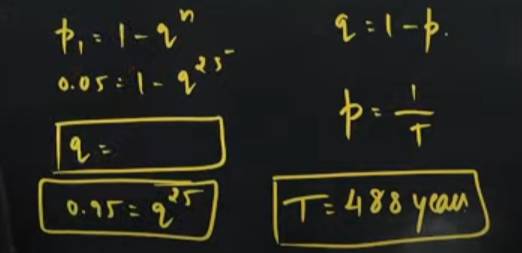 p₁ = 1 - qⁿ
0.05 = 1 - q²⁵
q =
0.95 = q²⁵
q = 1 - p.
p = 1/T
T = 488 years